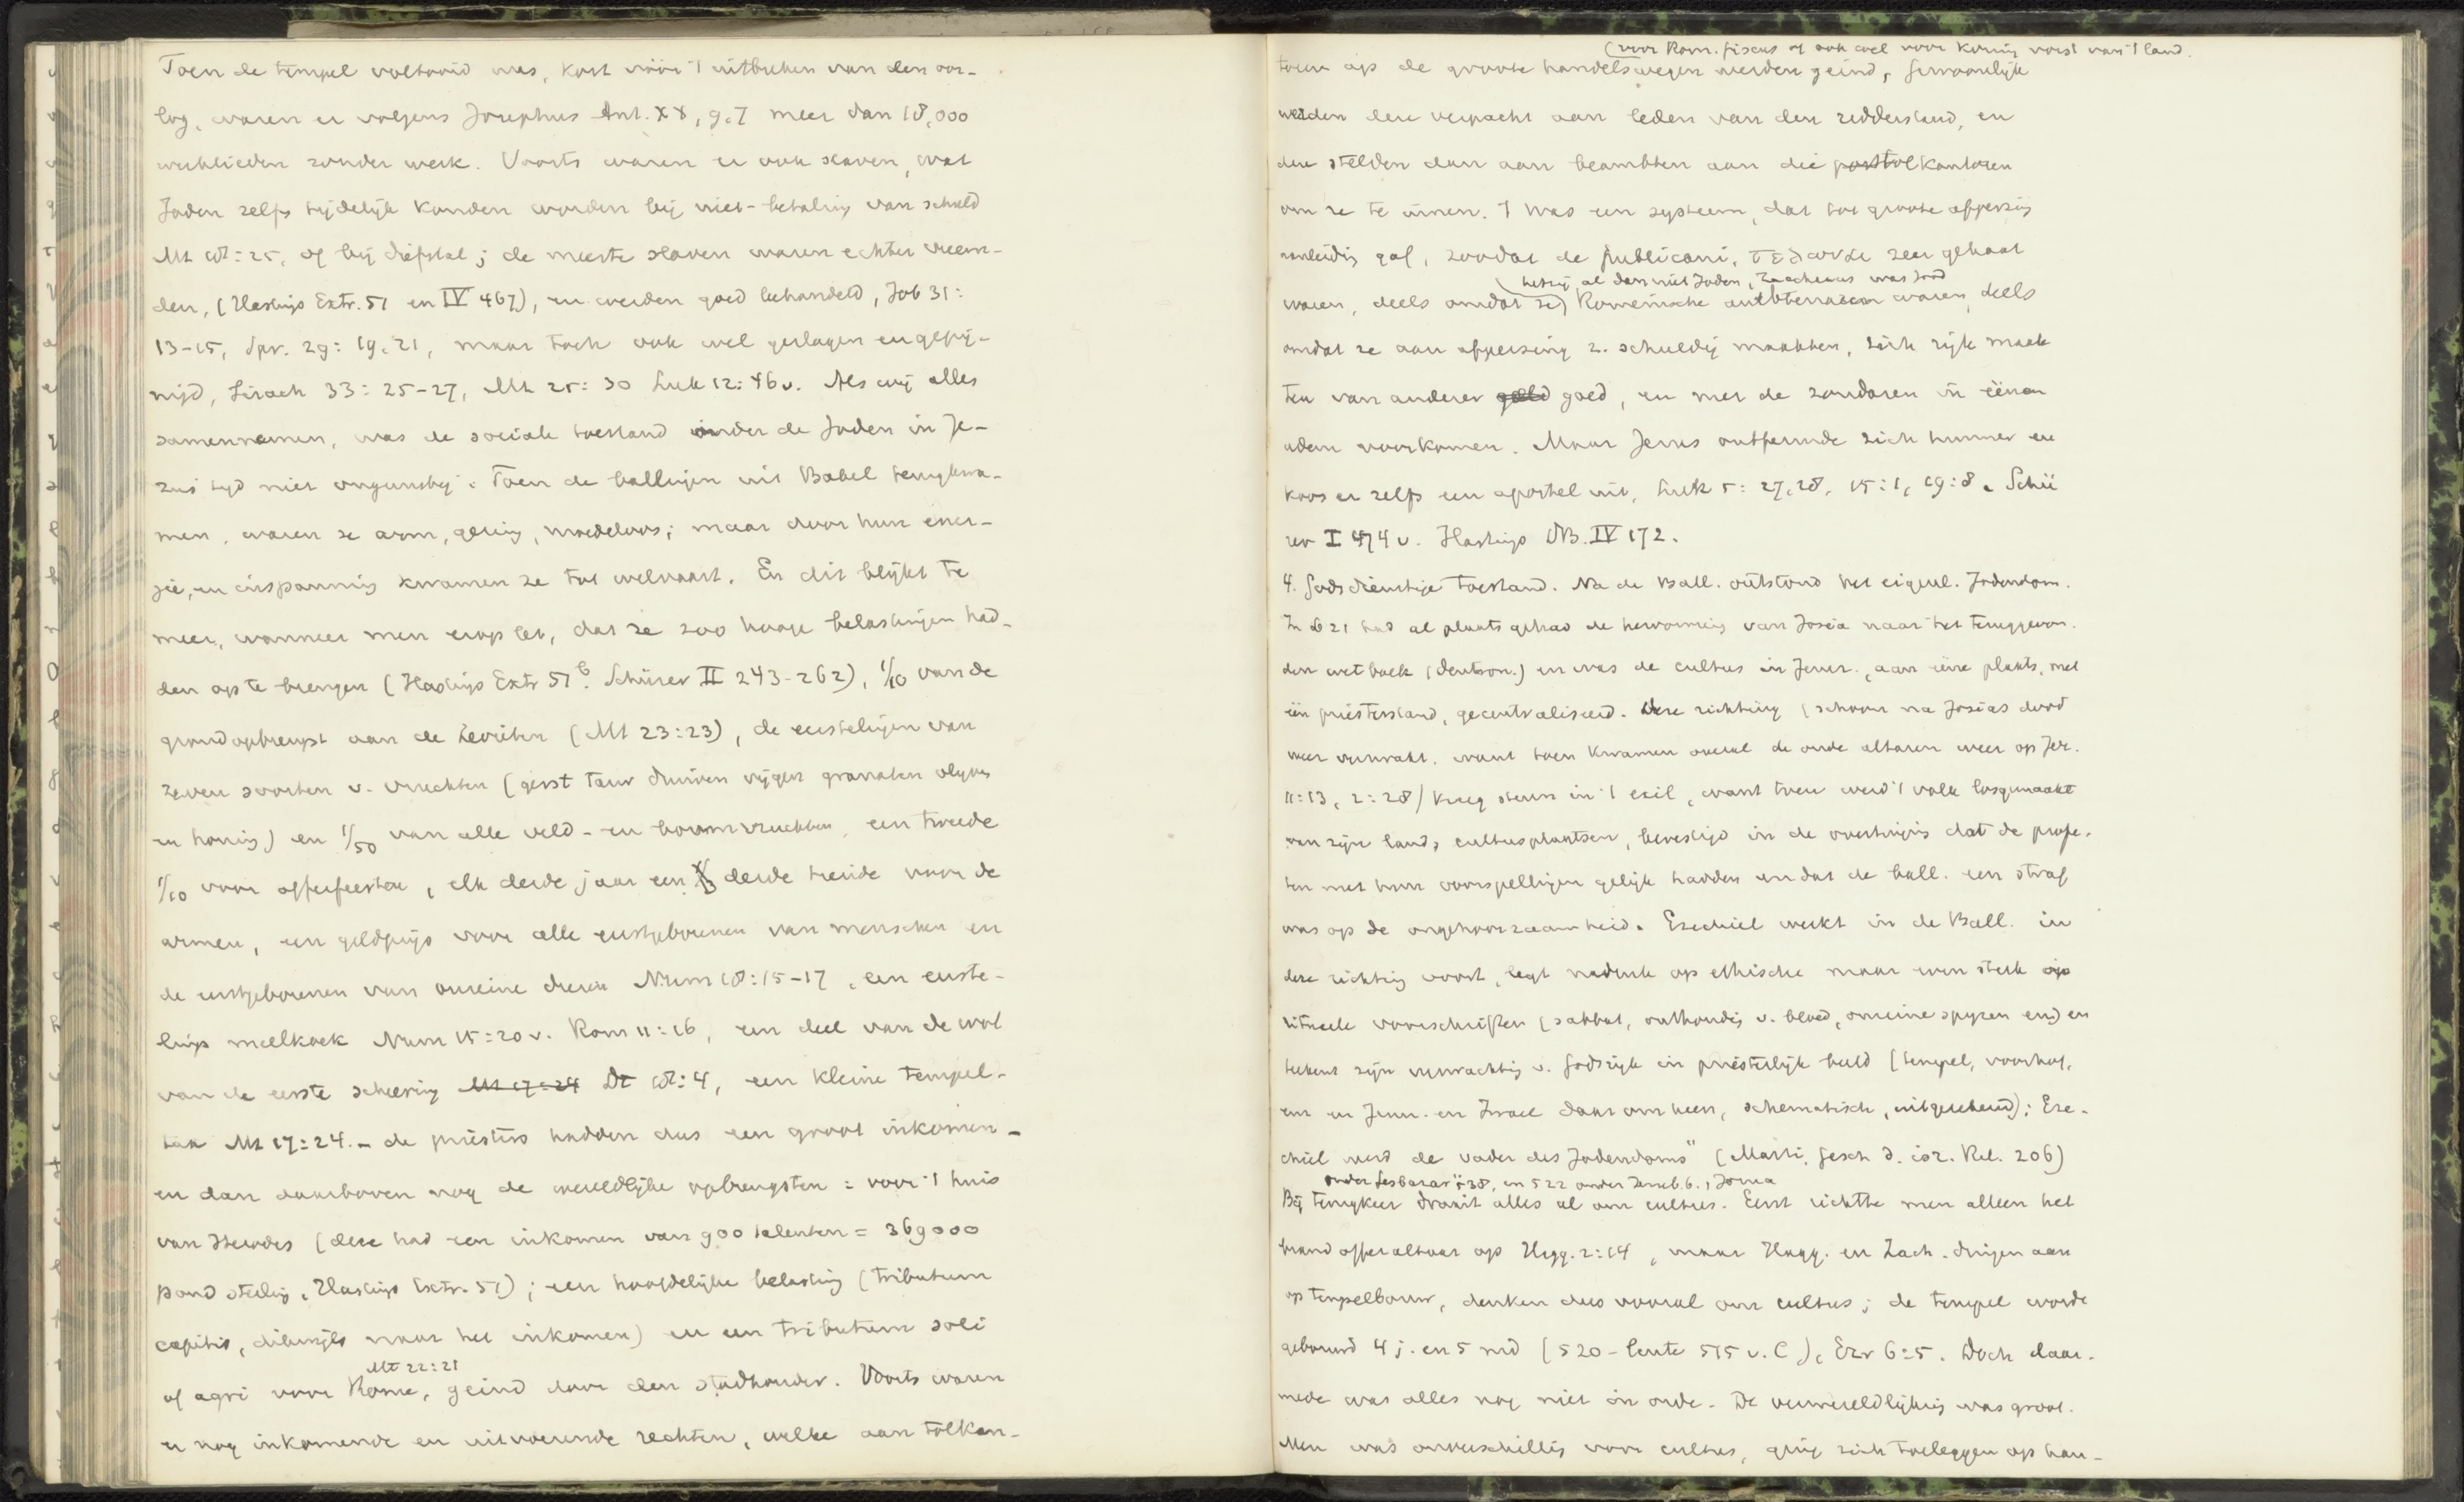 Toen de tempel voltooid was, kort vóór 't uitbreken van den oor-
log, waren er volgens Josephus Ant. XX, 9.7 meer dan 18,000
werklieden zonder werk. Voorts waren er ook slaven, wat
Joden zelfs tijdelijk konden worden bij niet-betaling van schuld
Mt 18:25, of bij diefstal; de meeste slaven waren echter vreem-
den, (Hastings Extr. 51 en IV 467), en werden goed behandeld, Job 31:
13-15, Spr. 29:19.21, maar toch ook wel geslagen en gepij-
nigd, Sirach 33:25-27, Mt 25:30 Luk 12:46v. Als wij alles
samennemen, was de sociale toestand onder de Joden in Je-
zus' tijd niet ongunstig. Toen de ballingen uit Babel terugkwa-
men, waren ze arm, gering, moedeloos; maar door hun ener-
gie, en inspanning kwamen ze tot welvaart. En dit blijkt te
meer, wanneer men erop let, dat ze zoo hooge belastingen had-
den op te brengen (Hastings Extr 51b. Schürer II 243-262), 1/10 van de
grondopbrengst aan de Levieten (Mt 23:23), de eerstelingen van
zeven soorten v. vruchten (gerst tarw druiven vijgen granaten olijven
en honig) en 1/50 van alle veld- en boomvruchten, een tweede
1/10 voor offerfeesten, elk derde jaar een derde tiende voor de
armen, een geldprijs voor alle eerstgeborenen van menschen en
de eerstgeborenen van onreine dieren Num 18:15-17, een eerste-
lings meelkoek Num 15:20v. Rom 11:16, een deel van de wol
van de eerste scheering Mt 17:24 Dt 18:4, een kleine tempel-
tax Mt 17:24. - de priesters hadden dus een groot inkomen -
en dan daarboven nog de wereldlijke opbrengsten: voor 't huis
van Herodes (deze had een inkomen van 900 talenten = 369000
pond sterling, Hastings Extr. 51); een hoofdelijke belasting (tributum
capitis, dikwijls naar het inkomen) en een tributum soli
Mt 22:21
of agri voor Rome, geind door den stadhouder. Voorts waren
er nog inkomende en uitvoerende rechten, welke aan tolkan-
(voor Rom. fiscus of ook wel voor koning vorst van 't land.
toren op de groote handelswegen werden geind, gewoonlijk
werden deze verpacht aan leden van den ridderstand, en
deze stelden dan aan beambten aan die post tolkantoren
om ze te innen. 't Was een systeem, dat tot groote afpersing
aanleiding gaf, zoodat de publicani, τελωναι zeer gehaat
hetzij al dan niet Joden, Zacheus was Jood
waren, deels omdat ze) Romeinsche ambtenaren waren, deels
omdat ze aan afpersing z. schuldig maakten, zich rijk maak
ten van anderer geld goed, en met de zondaren in éénen
adem voorkomen. Maar Jezus ontfermde zich hunner en
koos er zelfs een apostel uit, Luk 5:27.28, 15:1, 19:8. Schü
rer I 474v. Hastings DB. IV 172.
4. Godsdienstige toestand. Na de Ball. ontstond het eigenl. Jodendom.
In 621 had al plaats gehad de hervorming van Josia naar het teruggevon.
den wetboek (deuteron.) en was de cultus in Jeruz., aan ééne plaats, met
één priesterstand, gecentraliseerd. Deze richting (schoon na Josias dood
weer verzwakt, want toen kwamen overal de oude altaren weer op Jer.
11:13, 2:28) kreeg steun in 't exil, want toen werd 't volk losgemaakt
van zijn land, cultusplaatsen, bevestigd in de overtuiging dat de profe-
ten met hun voorspellingen gelijk hadden en dat de ball. een straf
was op de ongehoorzaamheid. Ezechiel werkt in de Ball. in
deze richting voort, legt nadruk op ethische maar even sterk op
ritueele voorschriften (sabbat, onthouding v. bloed, onreine spijzen enz) en
teekent zijn verwachting v. Godsrijk in priesterlijk beeld (tempel, voorhof,
enz en Jeruz. en Israel daar om heen, schematisch, uitgerekend); Eze-
chiel werd de vader des Jodendoms" (Marti, Gesch d. isr. Rel. 206)
onder Sesbazar 538, en 522 onder Zerub.b., Jozua
Bij terugkeer draait alles al om cultus. Eerst richtte men alleen het
brandofferaltaar op Hagg. 2:14, maar Hagg. en Zach. dringen aan
op tempelbouw, denken dus vooral om cultus; de tempel wordt
gebouwd 4 j. en 5 md (520 - lente 515 v. C), Ezr 6:5. Doch daar-
mede was alles nog niet in orde. De verwereldlijking was groot.
Men was onverschillig voor cultus, ging zich toeleggen op han-